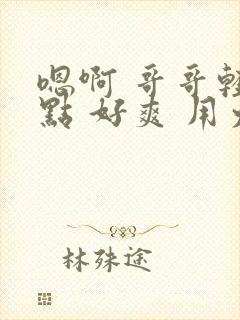 嗯啊 哥哥輕
點 好爽 用力
林殊途